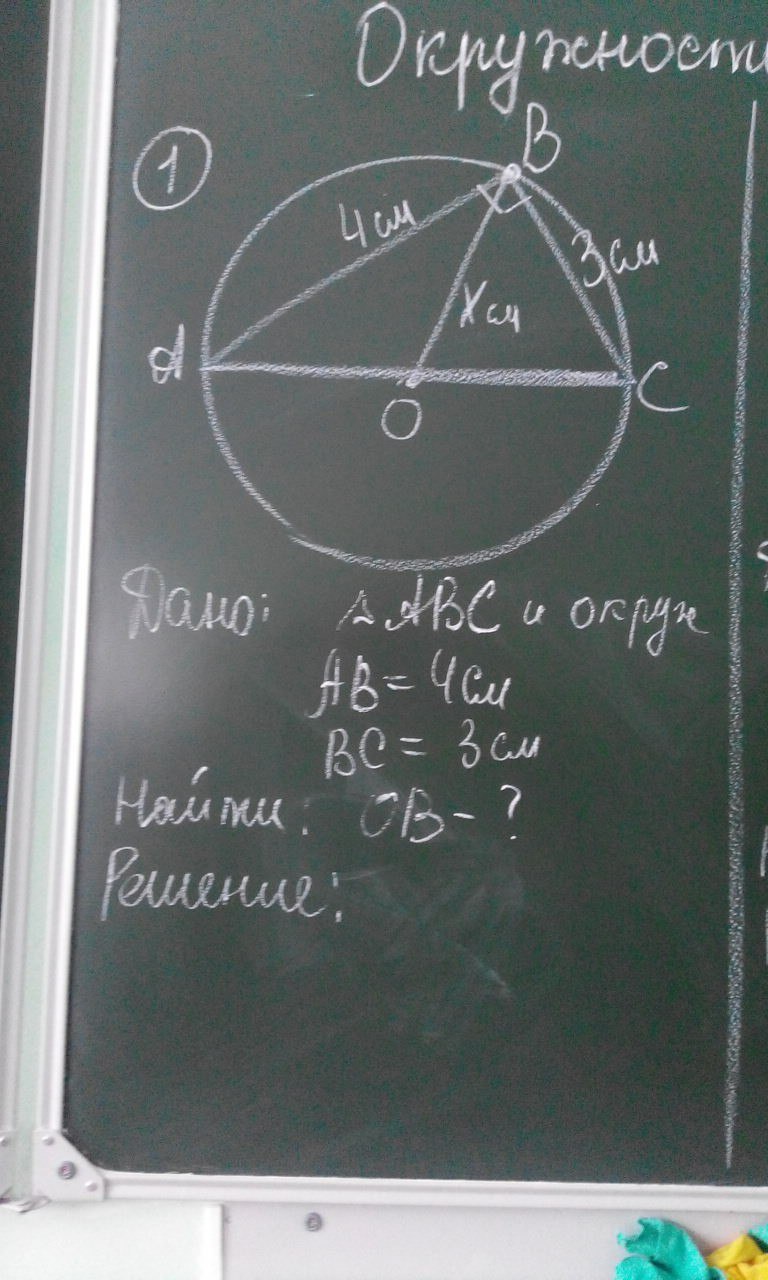 Окружность
1
B
4 см
3 см
X см
A
O
C
Дано: △ABC и окруж
AB = 4 см
BC = 3 см
Найти: OB - ?
Решение: